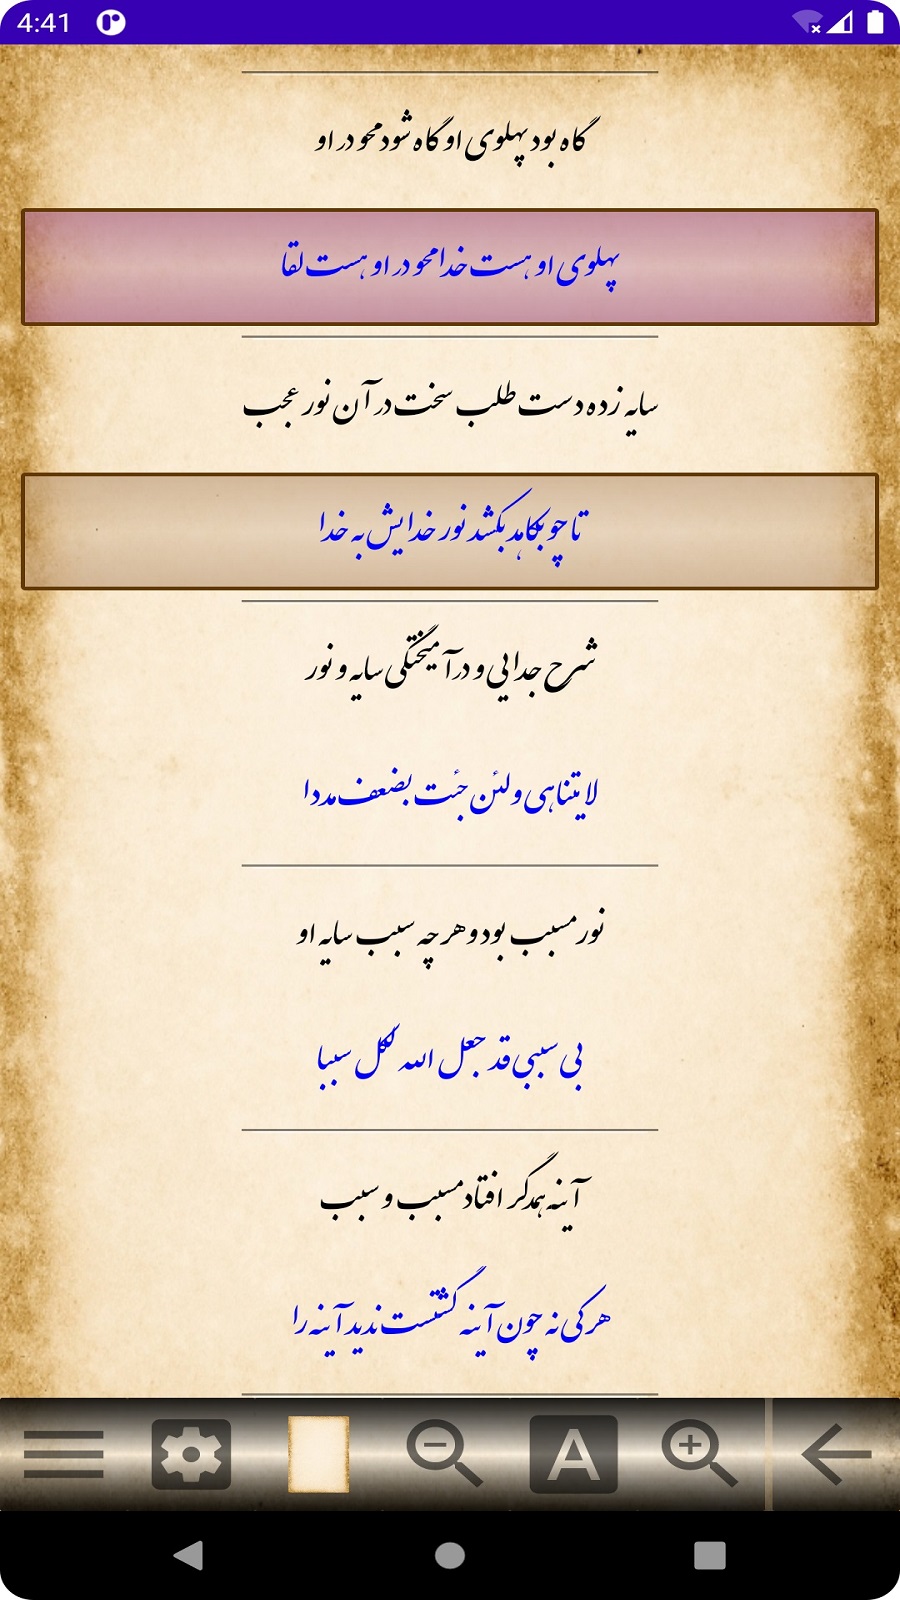 4:41
گاه بود پهلوی او گاه شود محو در او
پهلوی او هست خدا محو در او هست لقا
سایه زده دست طلب سخت در آن نور عجب
تا چو بکاهد بکشد نور خدایش به خدا
شرح جدایی و درآمیختگی سایه و نور
لا یتناهی ولئن جئت بضعف مددا
نور مسبب بود و هر چه سبب سایه او
بی سببی قد جعل الله لکل سببا
آینه همدگر افتاد مسبب و سبب
هر کی نه چون آینه گشتست ندید آینه را
A